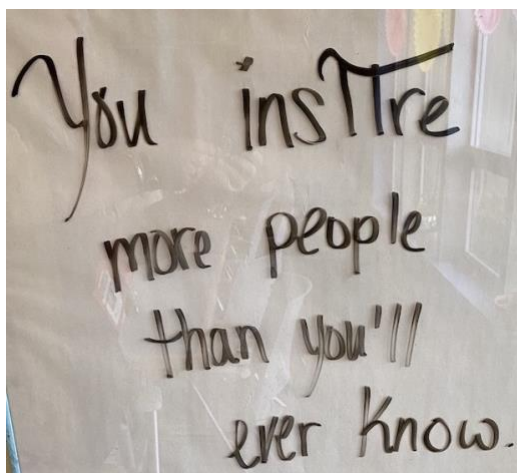 You insπre
more people
than you'll
ever know.